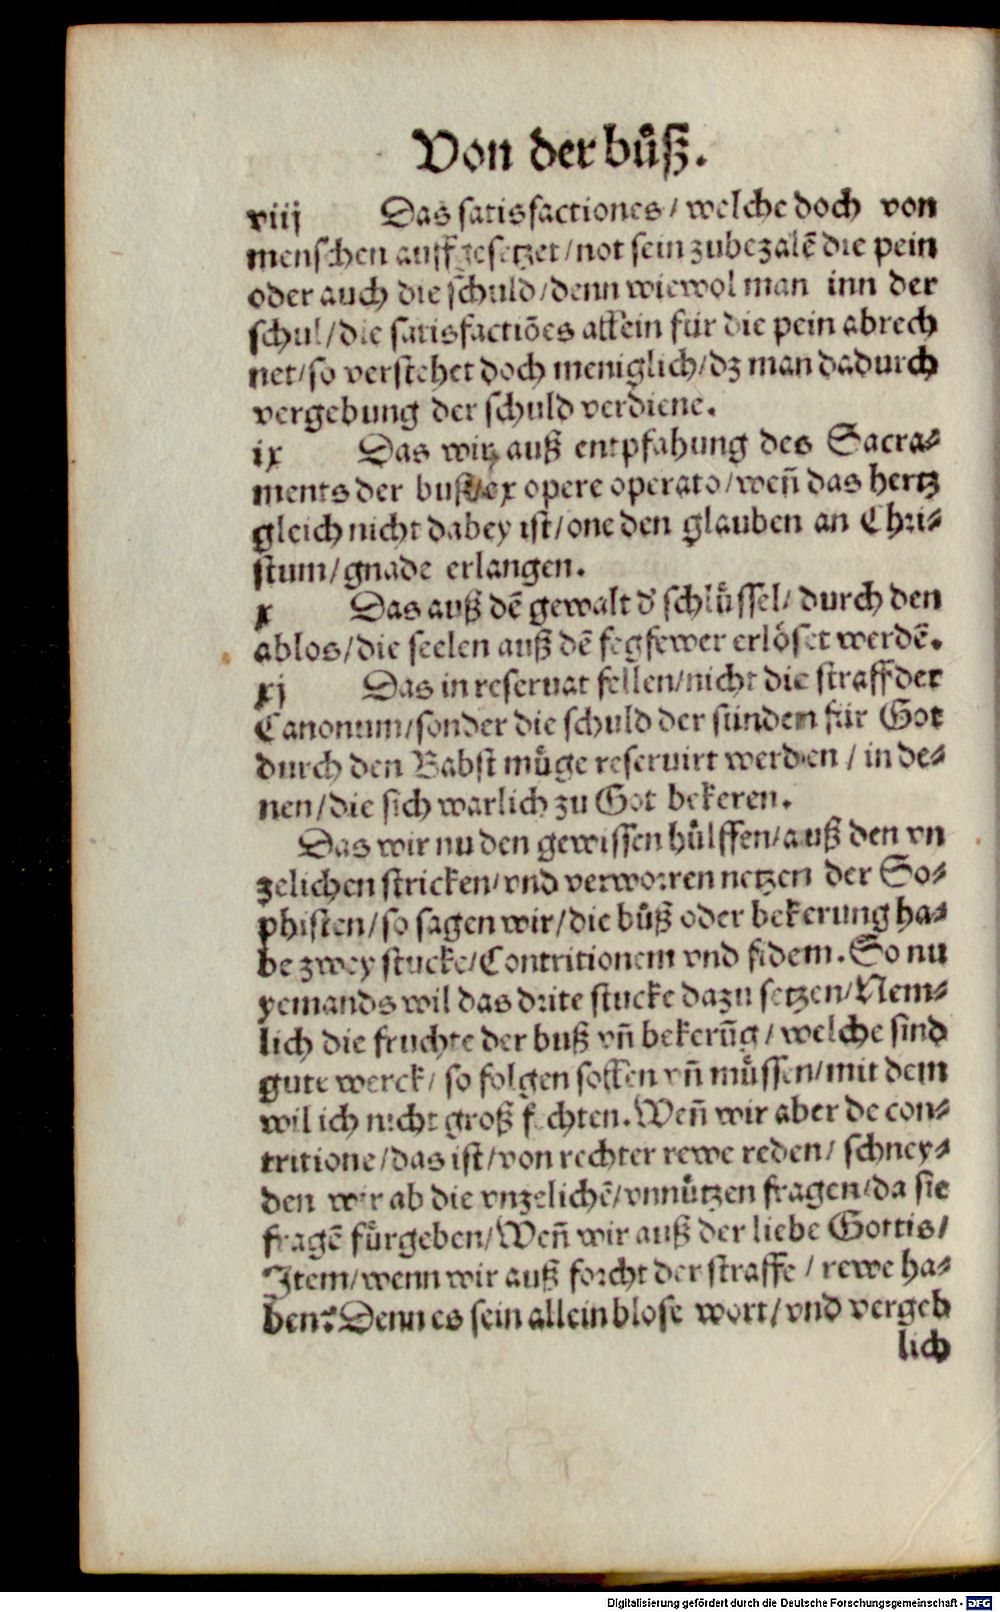 Von der bůß.
viij Das satisfactiones / welche doch von
menschen auffgesetzet / not sein zubezalē die pein
oder auch die schuld / denn wiewol man inn der
schul / die satisfactiōes allein für die pein abrech
net / so verstehet doch meniglich / dz man dadurch
vergebung der schuld verdiene.
ix Das wir auß entpfahung des Sacra⸗
ments der buß / ex opere operato / weñ das hertz
gleich nicht dabey ist / one den glauben an Chri⸗
stum / gnade erlangen.
x Das auß dē gewalt d' schlüssel / durch den
ablos / die seelen auß dē fegfewer erlöset werdē.
xj Das in reseruat fellen / nicht die straff der
Canonum / sonder die schuld der sünden für Got
durch den Babst müge reseruirt werden / in de⸗
nen / die sich warlich zu Got bekeren.
Das wir nu den gewissen hülffen / auß den vn
zelichen stricken / vnd verworren netzen der So⸗
phisten / so sagen wir / die bůß oder bekerung ha⸗
be zwey stucke / Contritionem vnd fidem. So nu
yemands wil das drite stucke dazu setzen / Nem⸗
lich die fruchte der buß vñ bekerūg / welche sind
gute werck / so folgen sollen vñ müssen / mit dem
wil ich nicht groß fechten. Weñ wir aber de con⸗
tritione / das ist / von rechter rewe reden / schney⸗
den wir ab die vnzelichē / vnnützen fragen / da sie
fragē fürgeben / Weñ wir auß der liebe Gottis /
Item / wenn wir auß forcht der straffe / rewe ha⸗
ben? Denn es sein allein blose wort / vnd vergeb
lich
Digitalisierung gefördert durch die Deutsche Forschungsgemeinschaft - DFG